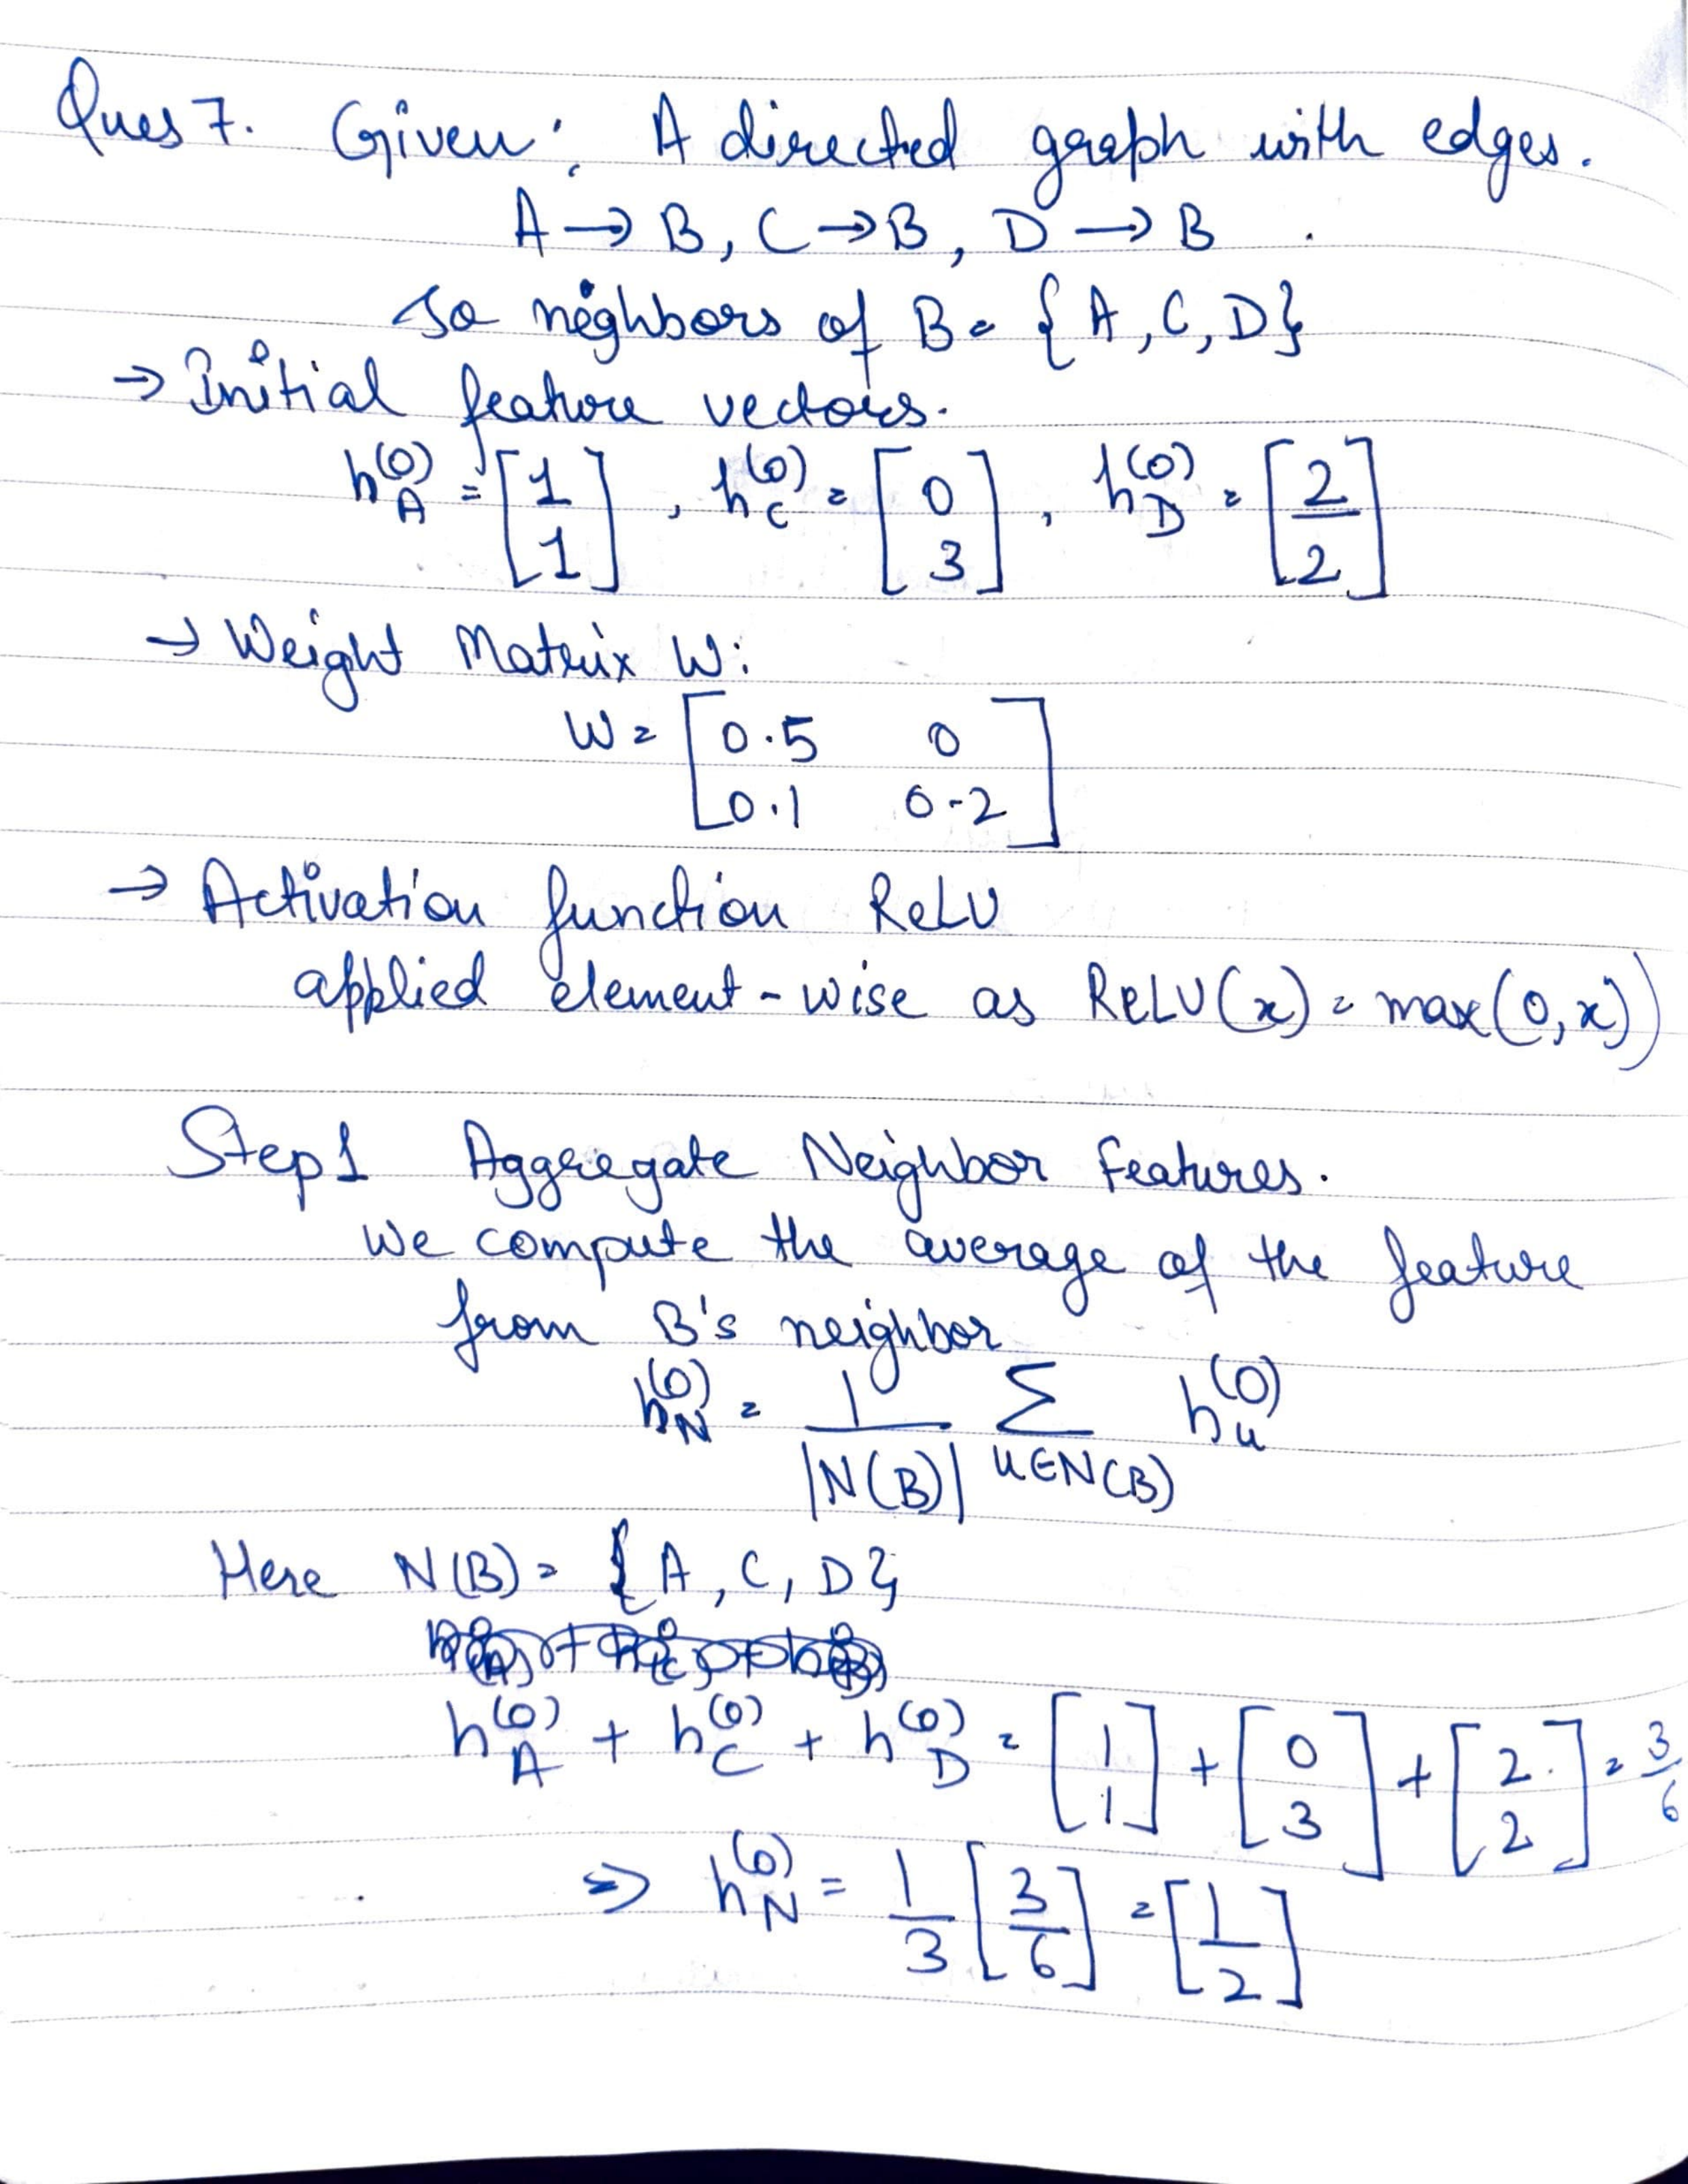 Ques 7. Given: A directed graph with edges.
A → B, C → B, D → B .
So neighbors of B = {A, C, D}
→ Initial feature vectors.
h_A^(0) = [1 1], h_C^(0) = [0 3], h_D^(0) = [2 2]
→ Weight Matrix W:
W = [0.5 0
0.1 0.2]
→ Activation function ReLU
applied element-wise as ReLU(x) = max(0, x))
Step 1 Aggregate Neighbor Features.
We compute the average of the feature
from B's neighbor
h_N^(0) = 1/|N(B)| Σ_{u∈N(B)} h_u^(0)
Here N(B) = {A, C, D}
h_A^(0) + h_C^(0) + h_D^(0) = [1 1] + [0 3] + [2 2] = 3/6
⇒ h_N^(0) = 1/3 [3/6] = [1/2]